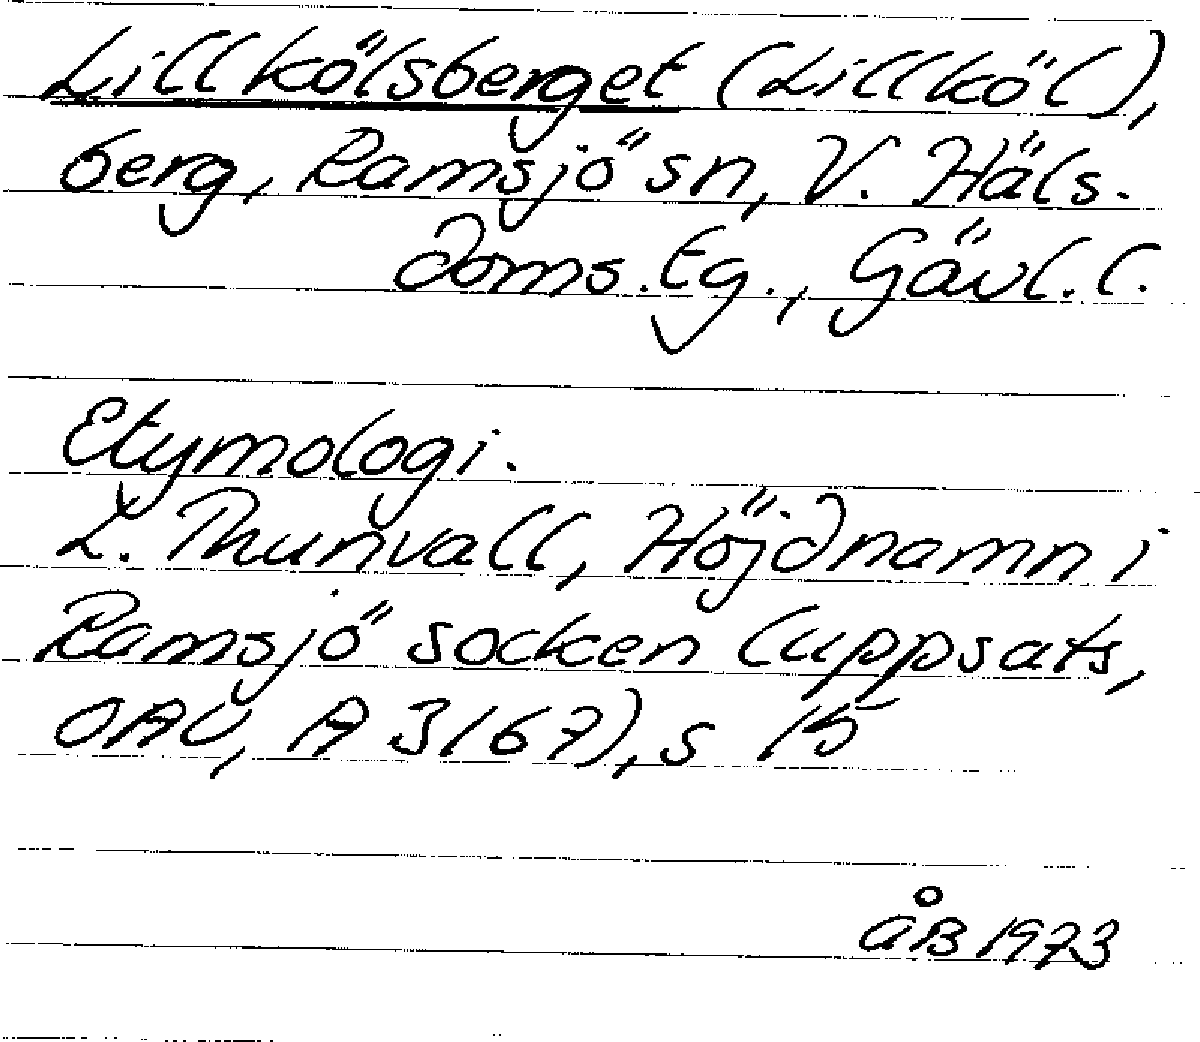 Lillkölsberget (Lillköl),
berg, Ramsjö sn, V. Häls.
doms.tg., Gävl. l.
Etymologi.
L. Thunvall, Höjdnamn i
Ramsjö socken (uppsats,
OAU, A 3167), s 15
ÅB 1973